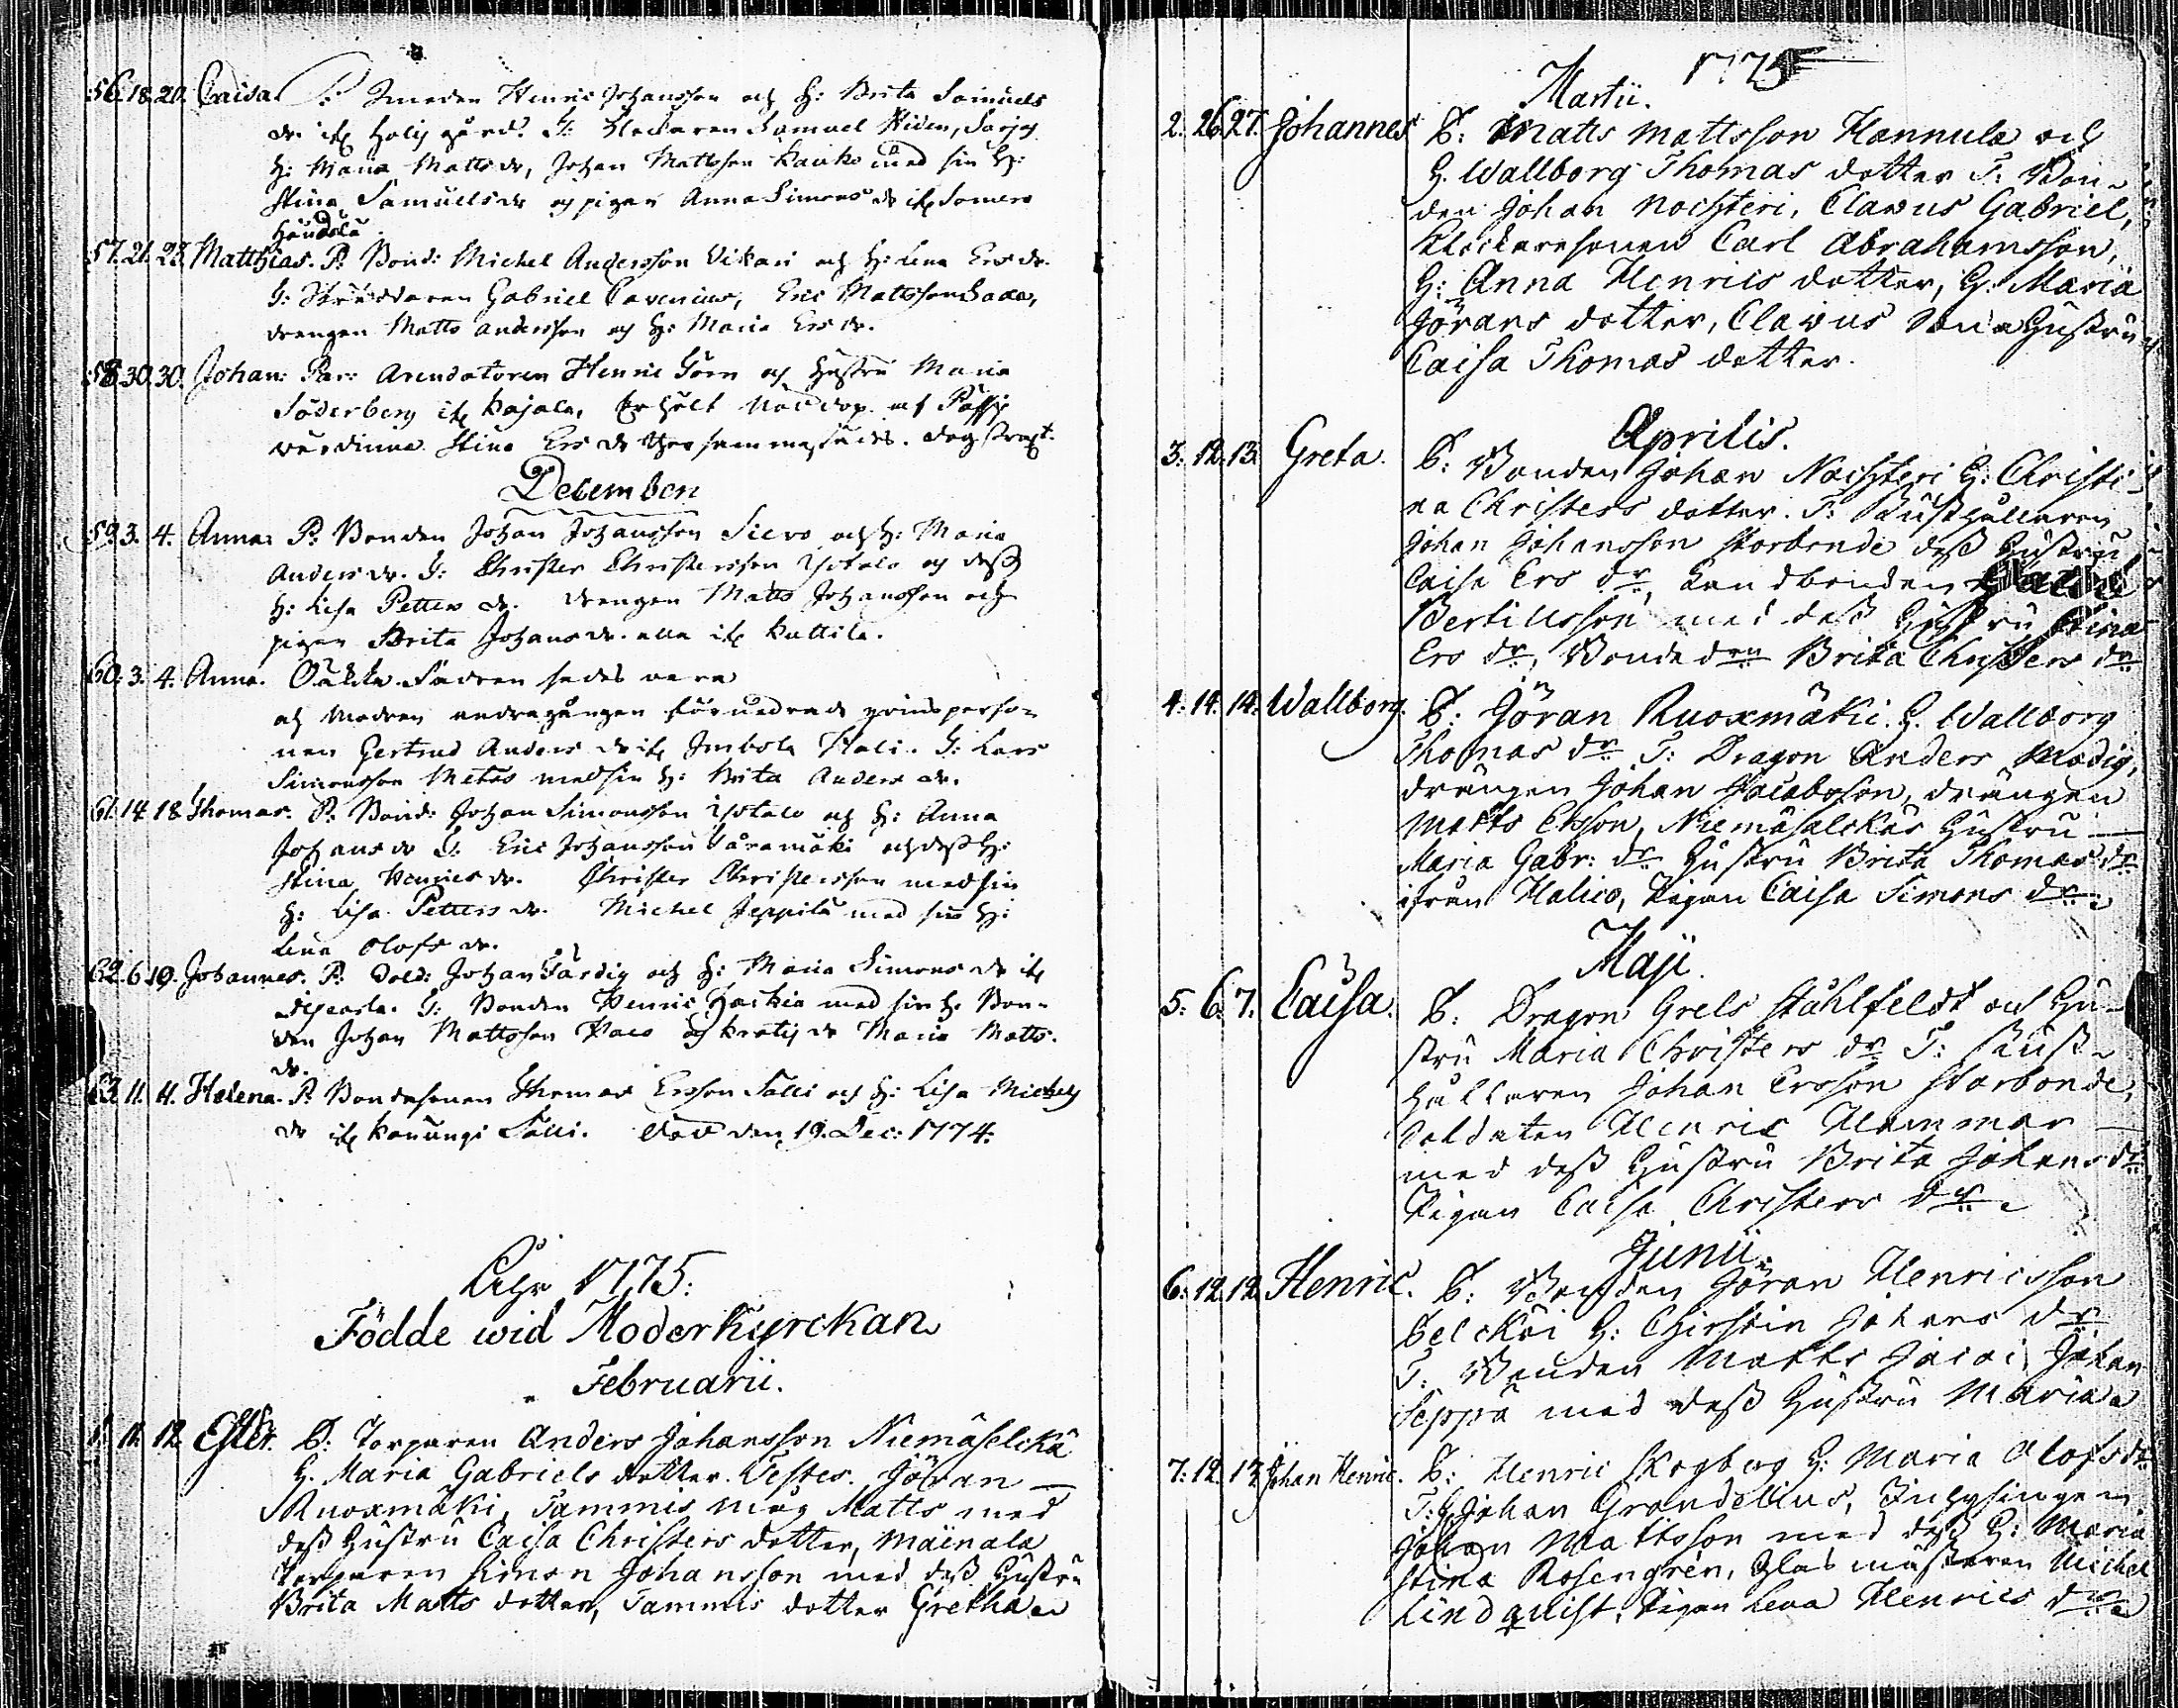 56. 18. 20. Caisa. P. Smeden Henric Johansson och H: Brita Samuels
dr. G: Klockaren Samuel Widen,
H: Maria Matts dr, Johan Mattsson Kauko med sin H:
Stina Samuels dr och pigan Anna Simons dr ifr Somero
57. 21. 23. Matthias. P. Bond: Michel Andersson Vikari och H: Lena Ers dr.
G: Skräddaren Gabriel Eric Mattsson
drengen Matts Andersson och H: Maria Ers dr.
58. 30. 30. Johan: Par: Arendatoren Henric och Hustru Maria
Söderberg ifr Kojola, Erhölt Nöddop af
värdinna Stina Ers dr
December
59. 3. 4. Anna: P. Bonden Johan Johansson Sievo och H: Maria
Anders dr. G: Christer Christersson Isotalo och dess
H: Lisa Petters dr. drengen Matts Johansson och
pigan Brita Johans dr. alla ifr Kuttila.
60. 3. 4. Anna. Oäckta. Fadren
och Modren andra gången qvinsperso-
nen Gertrud Anders dr ifr G: Lars
Simonsson med sin H: Brita Anders dr.
61. 14. 18 Thomas. P. Bond: Johan Simonsson Isotalo och H: Anna
Johans dr G: Eric Johansson Wäramäki och dess H:
Stina Henrics dr. Christer Christersson med sin
H: Lisa Petters dr. Michel Jeppilä med sin H:
Lena Olofs dr.
62. 6. 10. Johannes. P. Sold: Johan Färdig och H: Maria Simons dr ifr
G: Bonden Henric med sin H. Bon-
den Johan Mattsson och Maria Matts
dr.
63. 11. 11. Helena. P. Bondesonen Thomas Ersson Salli och H: Lisa Michels
dr ifr Salli. död den 19. Dec: 1774.
Åhr 1775:
Födde wid Moderkyrckan
Februarii.
1. 11. 12. Ester. F: Torparen Anders Johansson Niemäselckä
H. Maria Gabriels dotter. Testes. Jöran
Ruoxmäki, Tammis måg Matts med
dess Hustru Caisa Christers dotter, Mäinala
Torparen Simon Johansson med dess Hustru
Brita Matts dotter, Tammis dotter Gretha
1775
Martii.
2. 26. 27. Johannes F: Matts Mattsson Hannula och
H. Wallborg Thomas dotter T: Bon-
den Johan Nochteri, Clavus Gabriel,
Klockaresonen Carl Abrahamsson,
H: Anna Henrics dotter, H: Maria
Görans dotter, Clavus Hustru
Caisa Thomas dotter.
Aprilis.
3. 12. 13. Greta. F: Bonden Johan Nochteri H: Christi-
na Christers dotter. T: Rusthållaren
Johan Johansson Storbonde dess Hustru
Caisa Ers dr, Landbonden
Bertillsson med dess Hustru Stina
Ers dr, Bonde drn Brita Christers dr
4. 14. 14. Wallborg. F: Jöran Ruoxmäki. H. Wallborg
Thomas dr T: Dragon Anders Modig,
drängen Johan Jacobsson, drängen
Matts Ersson, Niemäsalckas Hustru
Maria Gabr: dr Hustru Brita Thomas dr
ifrån Halico, Pigan Caisa Simons dr
Maji.
5. 6. 7. Caisa. F: Dragon Grels Ståhlfeldt och Hu-
stru Maria Christers dr T: Rust-
hållaren Johan Ersson Storbonde,
Soldaten Henric Hammar
med dess Hustru Brita Johans dr
Pigan Caisa Christers dr
Junii.
6. 12. 12. Henric. F: Bonden Jöran Henricsson
Selckäi H: Chirstin Johans dr
T: Bonden Matts Jacoi, Johan
Seppä med dess Hustru Maria
7. 12. 17. Johan Henric. F: Henric Skogberg H: Maria Olofs dr
T: H Johan Grandelius, Inhysingen
Johan Mattsson med dess H: Maria
Stina Rosengrén, Glasmästaren Michel
Lindquist, Pigan Lena Henrics dr